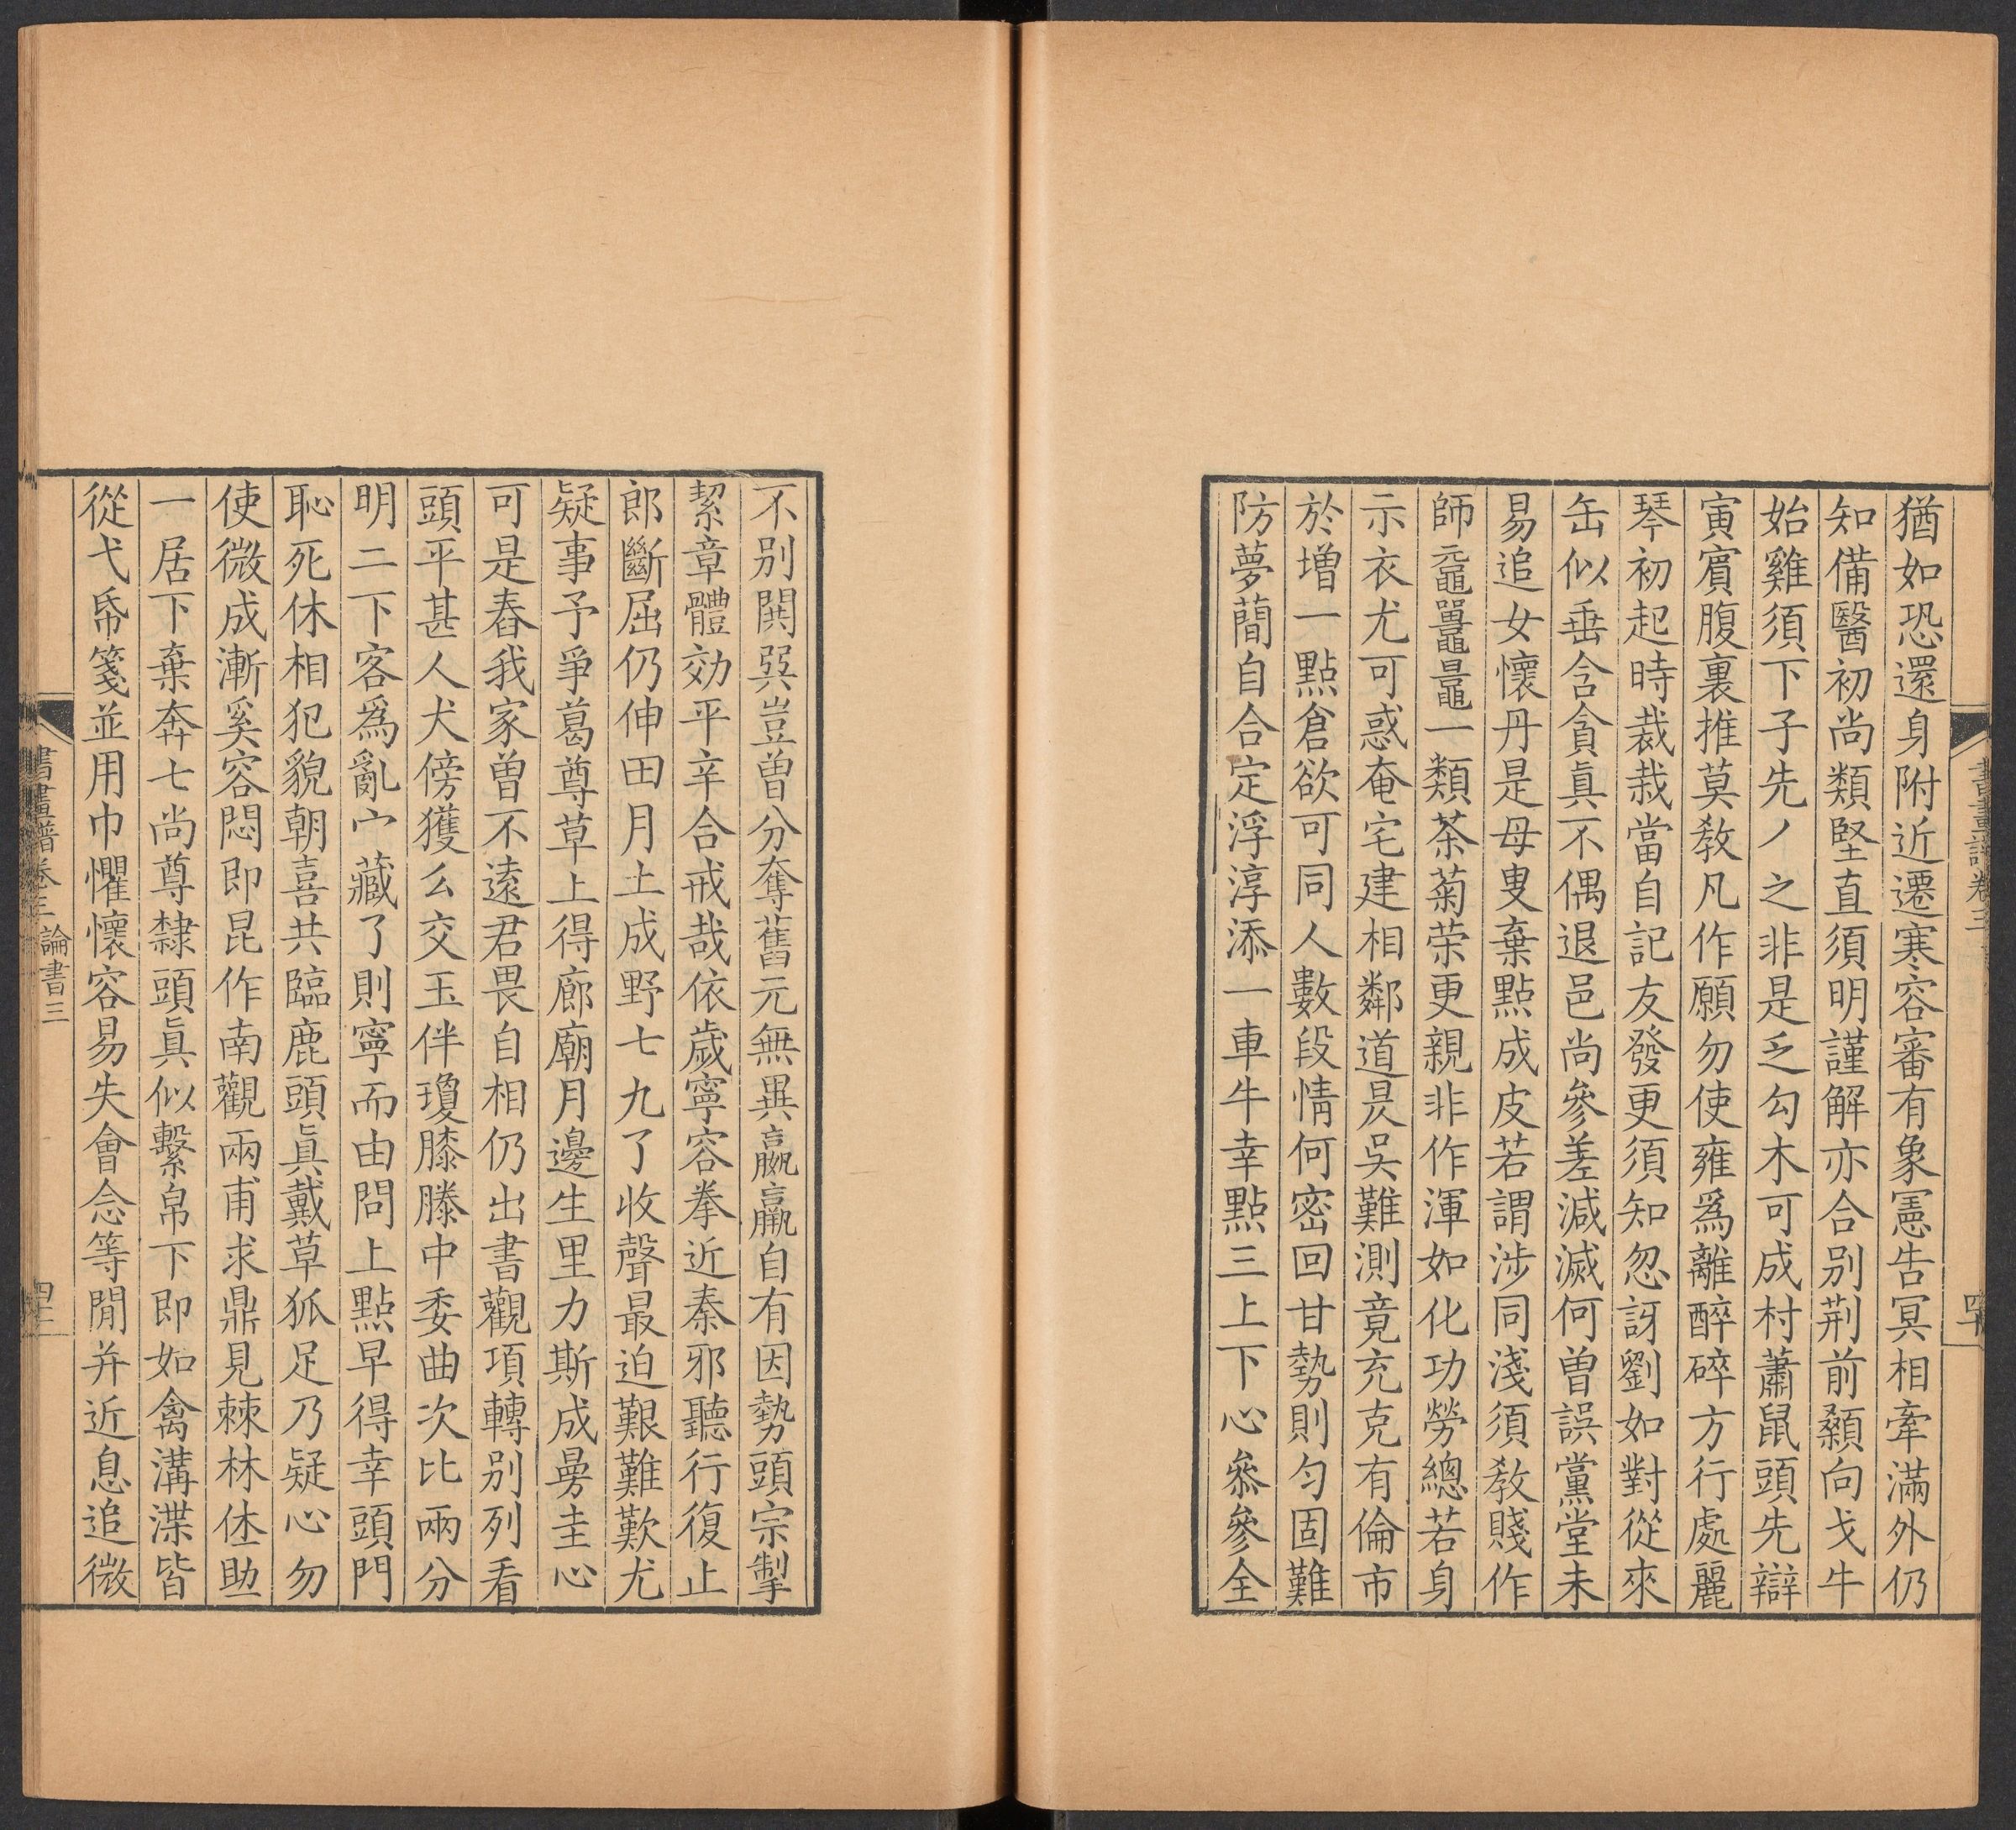 猶如恐還身附近遷寒容審有象憲告冥相牽滿外仍
知備醫初尚類堅直須明謹解亦合别荆前顙向戈牛
始雞須下子先丿之非是乏勾木可成村蕭鼠頭先辯
寅賔腹裏推莫教凡作願勿使雍爲離醉碎方行處麗
琴初起時裁栽當自記友發更須知忽訝劉如對從來
缶似垂含貪眞不偶退邑尚參差減滅何曽誤黨堂未
易追女懷丹是母叟棄點成皮若謂涉同淺須教賤作
師黿鼉鼂一類茶菊荣更親非作渾如化功勞總若身
示衣尤可惑奄宅建相鄰道炅吳難測竟充克有倫市
於増一點倉欲可同人數段情何密回甘勢則匀固難
防夢蕳自合定浮淳添一車牛幸點三上下心叅參全
書畫譜卷三
不别闗巽豈曽分奪舊元無異嬴羸自有因勢頭宗掣
絜章體効平辛合戒哉依歲寧容拳近秦邪聽行復止
郎斷屈仍伸田月土成野七九了收聲最迫艱難歎尤
疑事予爭葛尊草上得廊廟月邊生里力斯成㬅圭心
可是舂我家曽不遠君畏自相仍出書觀項轉别列看
頭平甚人犬傍獲么交玉伴瓊膝滕中委曲次比兩分
明二下客爲亂宀藏了則寧而由問上點早得幸頭門
恥死休相犯貌朝喜共臨鹿頭眞戴草狐足乃疑心勿
使微成漸奚容悶即昆作南觀兩甫求鼎見棘林㑅助
一居下棄奔七尚尊隸頭眞似繫帛下即如禽溝渫皆
從弋帋箋並用巾懼懷容易失會念等閒并近息追微
書畫譜卷三 論書三